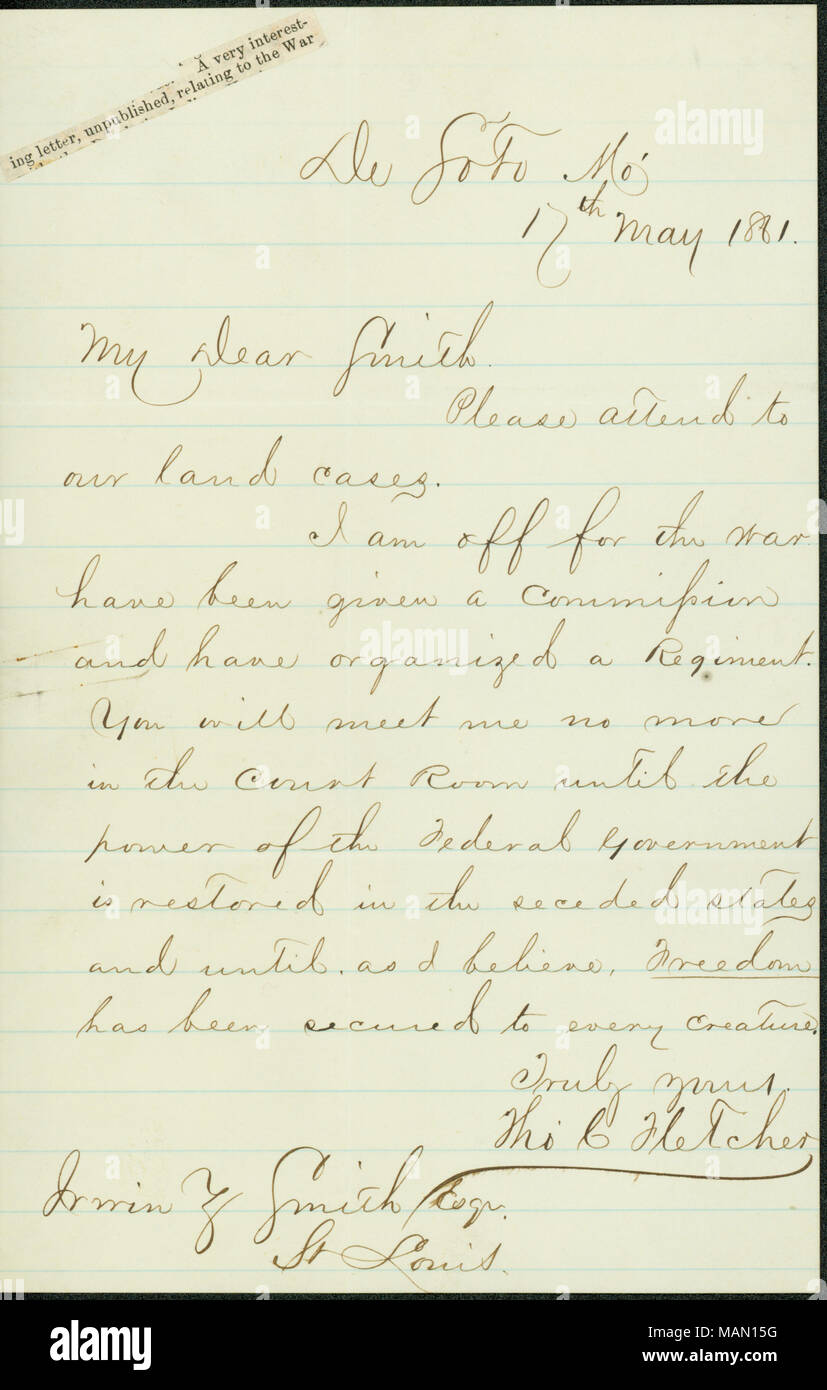 A very interest-
ing letter, unpublished, relating to the War
De Soto Mo
17th May 1861.
My Dear Smith.
Please attend to
our land cases.
I am off for the war
have been given a Commission
and have organized a Regiment.
You will meet me no more
in the Court Room until the
power of the Federal Government
is restored in the seceded states
and until. as I believe, Freedom
has been secured to every creature.
Truly yours.
Tho C Fletcher
Irwin Z Smith Esqr.
St Louis.
alamy
Image ID: MAN15G
www.alamy.com